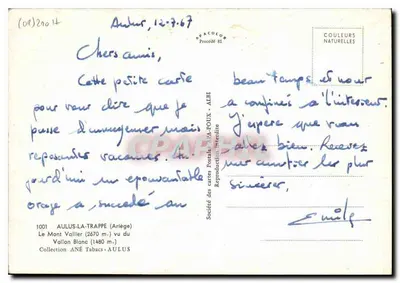 (08)21017
Aulus, 12-7-67
APACOLOR
Procédé
COULEURS
NATURELLES
Chers amis,
Cette petite carte
pour vous dire que je
passe d' mais
reposantes vacances. Au
jourd'hui un épouvantable
orage a succédé au
beau temps et nous
a confinés à l'intérieur.
J'espère que vous
allez bien. Recevez
mes amitiés les plus
sincères.
Emile
Société des cartes Postales "LA-POUX" - ALBI
Reproduction interdite
1001 AULUS-LA-TRAPPE (Ariège)
Le Mont Vallier (2670 m.) vu du
Vallon Blanc (1460 m.)
Collection ANÉ Tabacs - AULUS